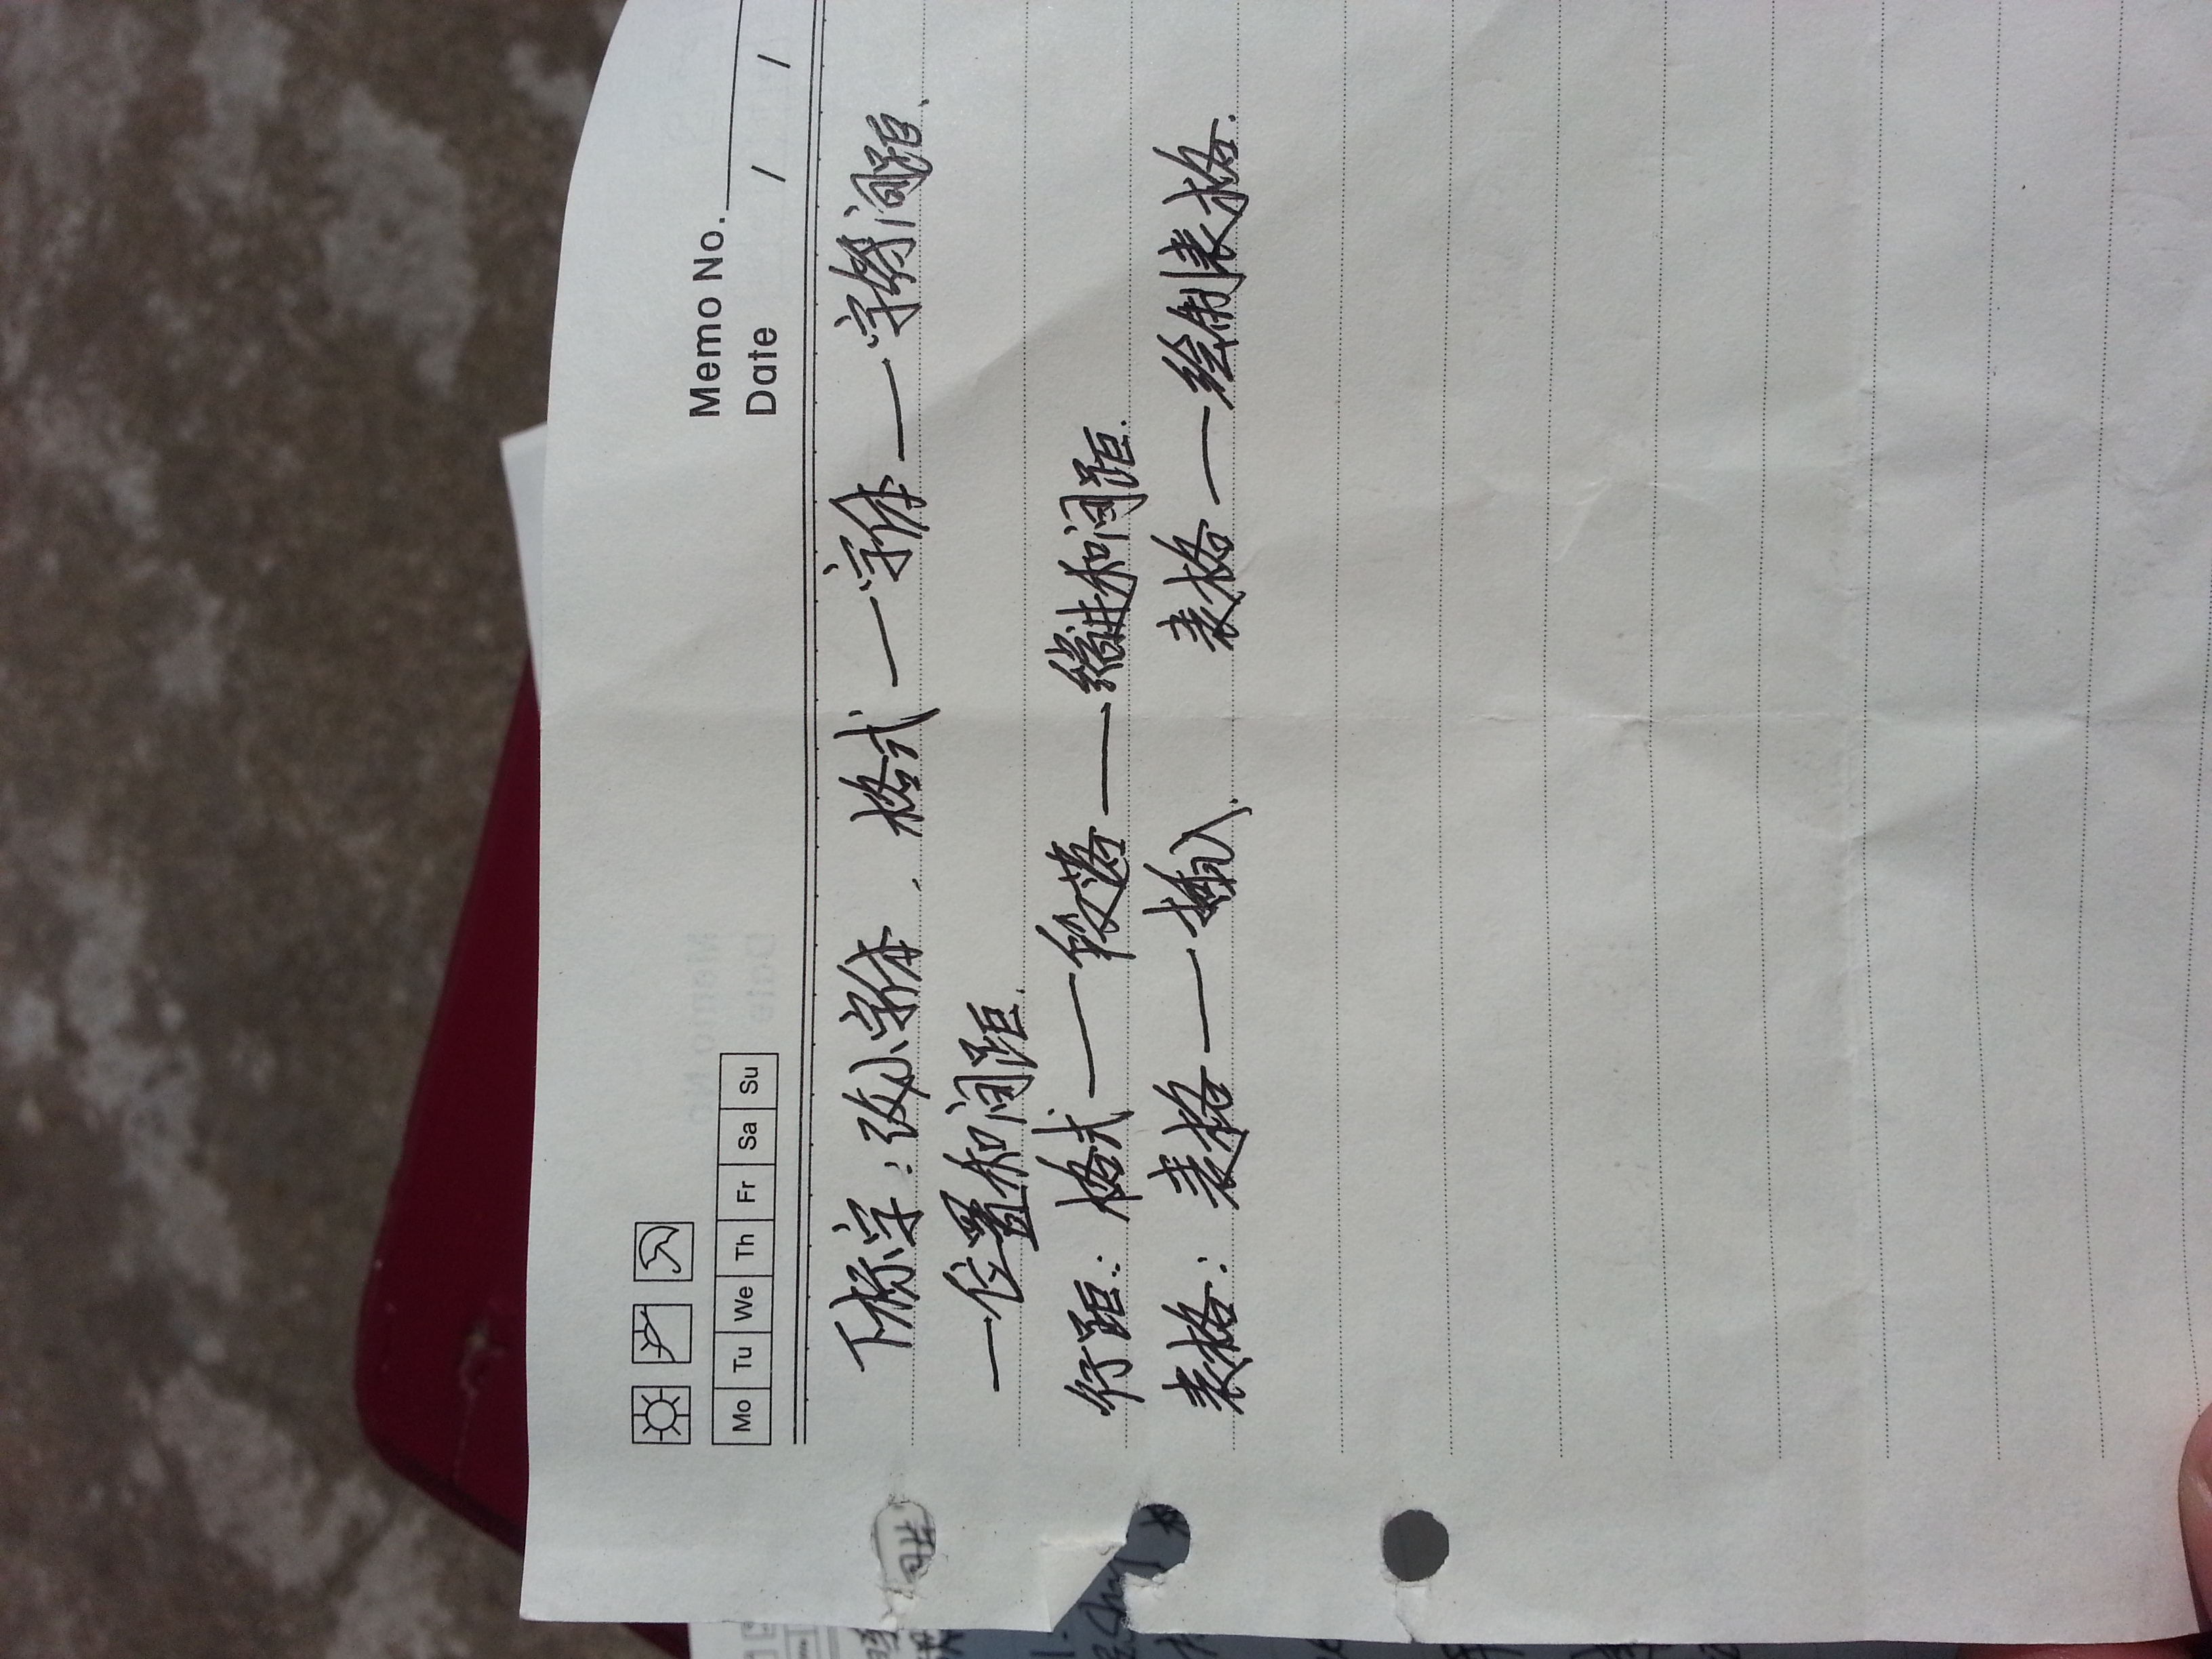 Memo No.
Mo Tu We Th Fr Sa Su
Date / /
下标字：改小字体．格式—字体—字符间距．
—位置和间距．
行距：格式—段落—缩进和间距．
表格：表格—插入． 表格—绘制表格．